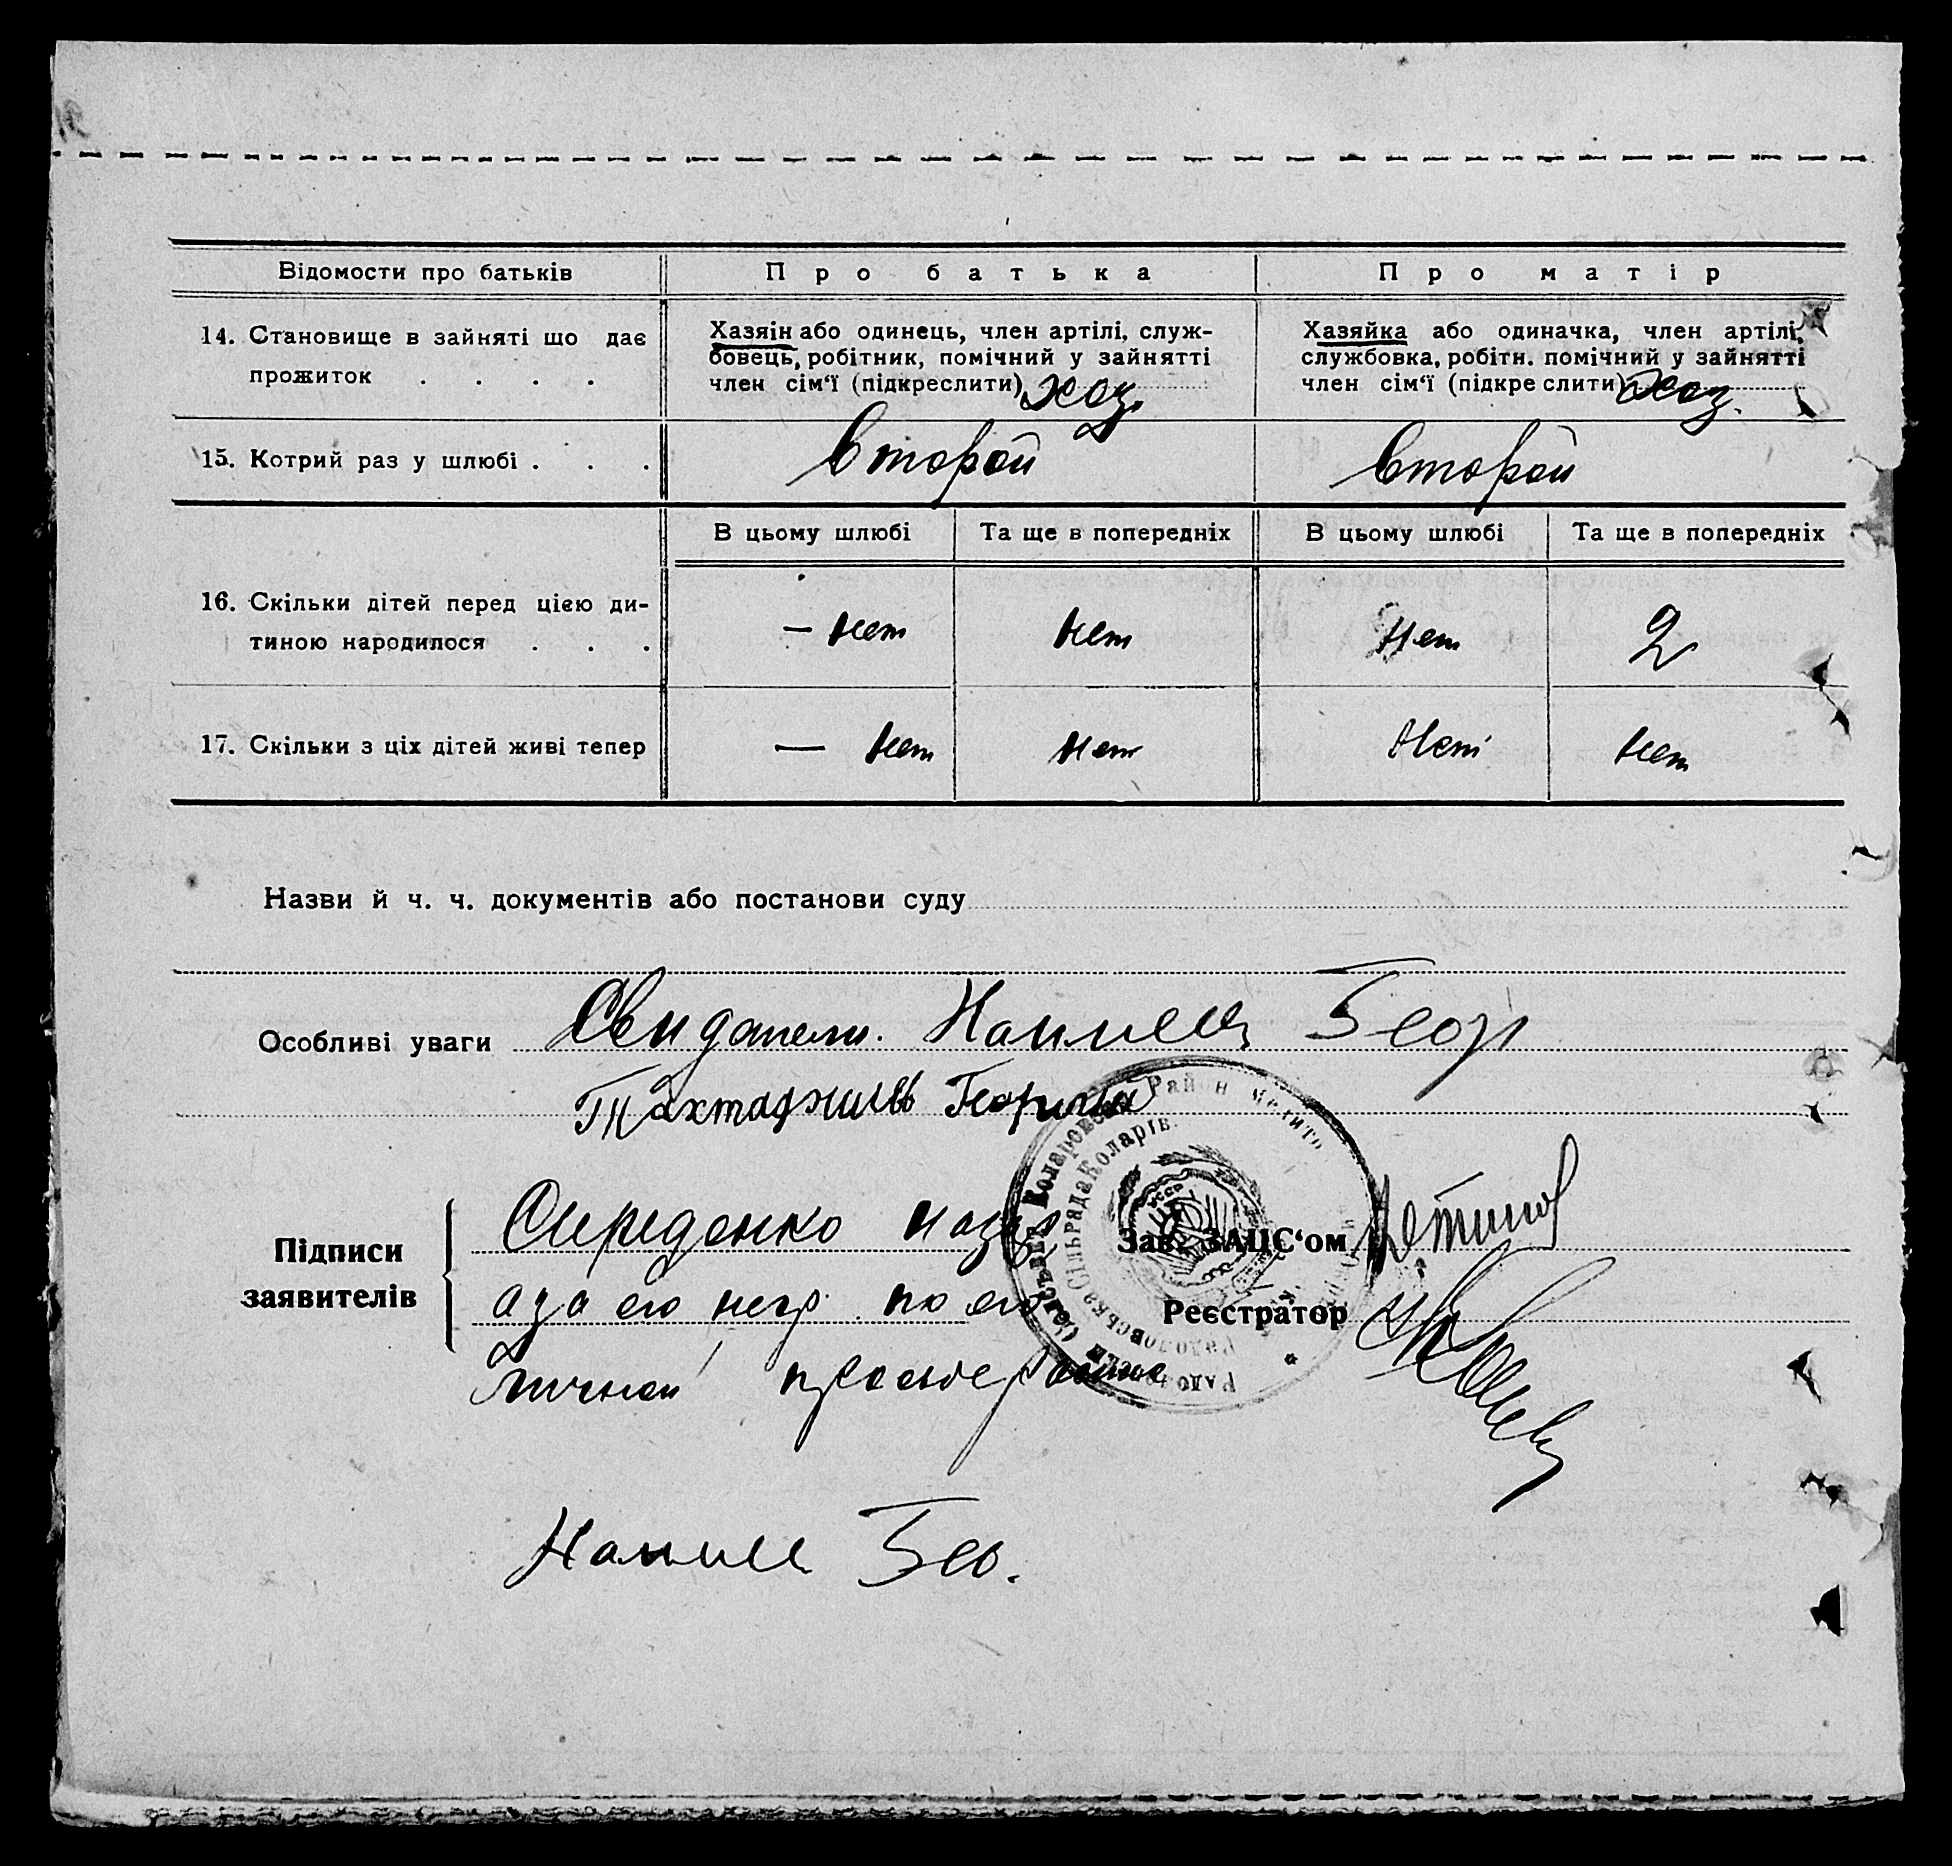 Відомости про батьків Про батька Про матір
14. Становище в зайняті що дає прожиток . . . .
Хазяін або одинець, член артілі, служ-
бовець, робітник, помічний у зайнятті
член сім‘ї (підкреслити) хоз.
Хазяйка або одиначка, член артілі,
службовка, робітн. помічний у зайнятті
член сім‘ї (підкре слити) хоз.
15. Котрий раз у шлюбі . . . Второй Второй
В цьому шлюбі Та ще в попередніх В цьому шлюбі Та ще в попередніх
16. Скільки дітей перед цією ди-
тиною народилося . . . — нет нет Нет 2
17. Скільки з ціх дітей живі тепер — нет нет Нет нет
Назви й ч. ч. документів або постанови суду
Особливі уваги Свидатели. Геор
Тахтаджиев Георгий
Район
УССР
Підписи
заявителів
Середенко
Зав. ЗАЦС‘ом
аза его негр. по его
Реєстратор
личной
Гео.